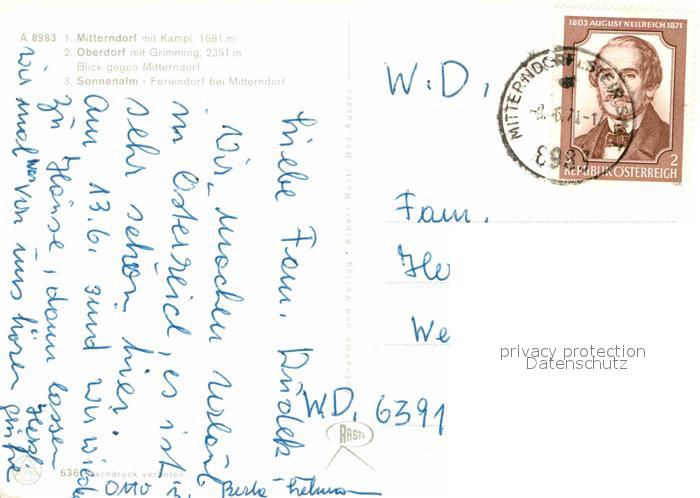 A 8983 1. Mitterndorf mit Kampl, 1681 m
2. Oberdorf mit Grimming, 2351 m
Blick gegen Mitterndorf
3. Sonnenalm - Feriendorf bei Mitterndorf
Liebe Fam.
Wir machen Urlaub
in Österreich, es ist
sehr schön hier.
Am 13.6. sind wir wieder
zu Hause, dann lassen
wir mal was von uns hören
Herzl.
Grüße
Otto u.
W.D.
Fam.
He
We
W.D. 6391
1803 AUGUST NEILREICH 1871
2
REPUBLIK ÖSTERREICH
8983
Aufnahme und Verlag: Albert Rastl, Bad Aussee
RASTL
Nachdruck verboten
privacy protection
Datenschutz